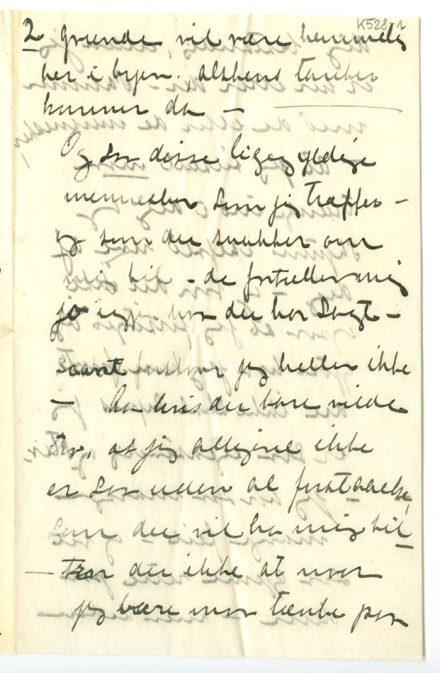 K528, 2
2 grunde vil være hemmelig
her i byen, alskens tanker
kommer da —
Og saa disse ligegyldige
mennesker som jeg træffer —
og som du snakker om
mig til — de fortæller mig
jo igjen hva du har sagt —
Saant forstaar jeg heller ikke
— Aa hvis du bare vilde
tro, at jeg alligevel ikke
er saa uden al forstaaelse,
som du vil ha mig til —
— Tror du ikke at naar
jeg bare maa tænke paa